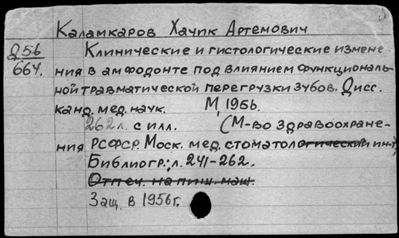 Каламкаров Хачик Артемович
Д56
664.
Клинические и гистологические измене-
ния в амфодонте под влиянием функциональ-
ной травматической перегрузки зубов. Дисс.
канд. мед. наук. М, 1956.
262 л. с илл. (М-во здравоохране-
ния РСФСР. Моск. мед. стоматологический ин-т)
Библиогр: л. 241-262.
Отпеч. на пиш. маш.
Защ. в 1956г.